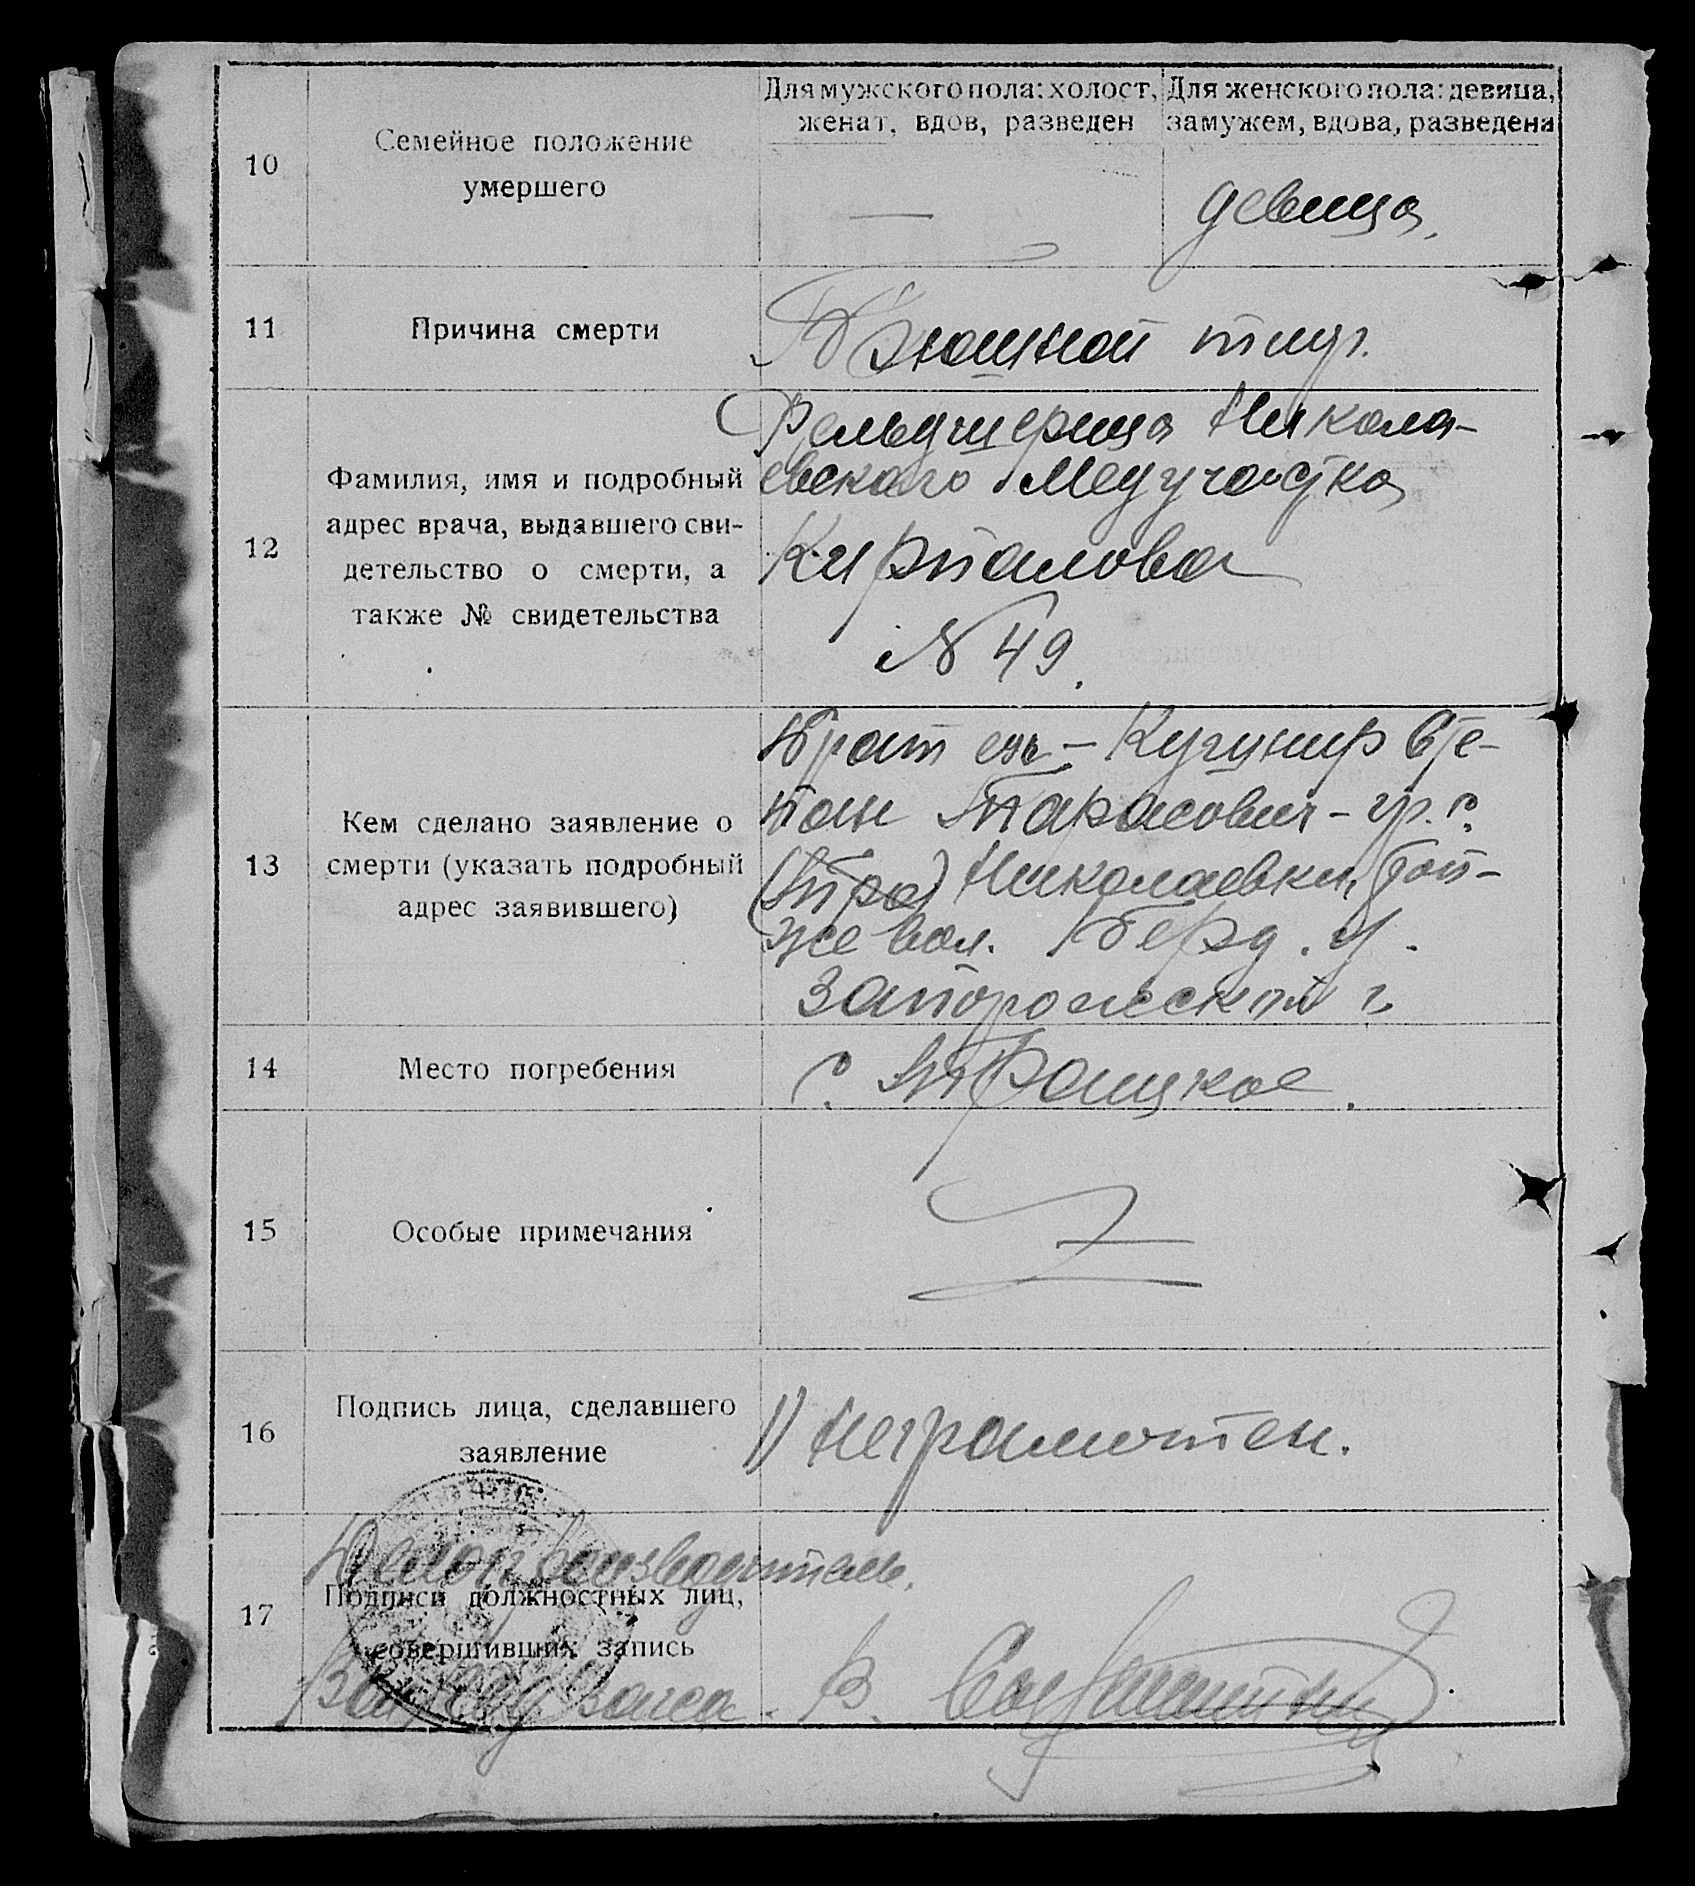 10
Семейное положение
умершего
Для мужского пола: холост,
женат, вдов, разведен
—
Для женского пола: девица,
замужем, вдова, разведена
девица,
11
Причина смерти
Брюшной тиф.
12
Фамилия, имя и подробный
адрес врача, выдавшего сви-
детельство о смерти, а
также № свидетельства
Фельдшерица Никола-
евского Медучастка
№ 49.
13
Кем сделано заявление о
смерти (указать подробный
адрес заявившего)
Брат ея – Сте-
пан Тарасович – гр. с.
(Тро) Николаевки, той-
же вол. Берд. у.
Запорожской г.
14
Место погребения
с. Троицкое.
15
Особые примечания
16
Подпись лица, сделавшего
заявление
1) Неграмотен.
17
Делопроизводитель.
Подписи должностных лиц,
совершивших запись